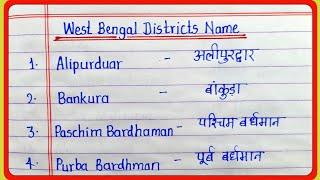 West Bengal Districts Name
1. Alipurduar - अलीपुरद्वार
2. Bankura - बांकुड़ा
3. Paschim Bardhaman - पश्चिम बर्धमान
4. Purba Bardhman - पूर्व बर्धमान